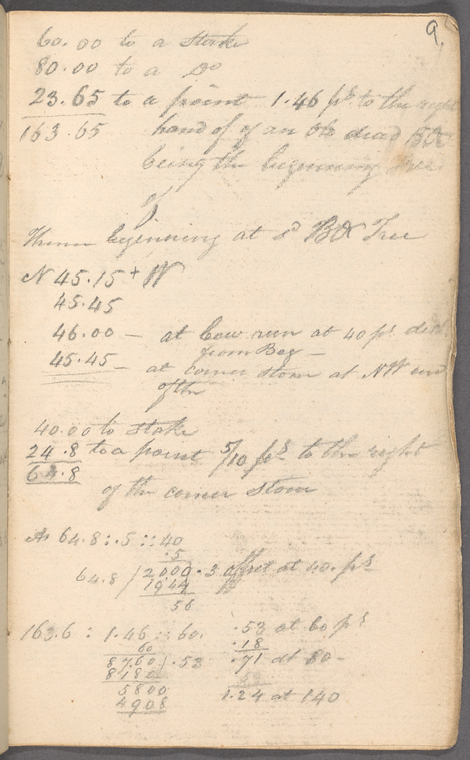 9.
60.00 to a Stake
80.00 to a Do
23.65 to a point 1.46 ps to the right
163.65 hand of of an old dead BO
being the beginning tree
of
Thence beginning at sd BO Tree
N 45.15+ W
45.45
46.00 — at Cow run at 40 ps dist
from Beg —
45.45 — at corner stone at NW end
of the
40.00 to stake
24.8 to a point 5/10 ps to the right
64.8
of the corner Stone
As 64.8 : .5 :: 40
.5
64.8 / 2000 . 3 offset at 40. ps
1944
56
163.6 : 1.46 :: 60. .53 at 60 ps
60 .18
8760 / .53 .71 at 80 —
8180
5800 1.24 at 140
4908